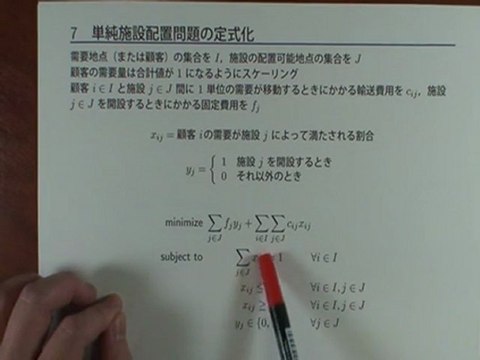 7 単純施設配置問題の定式化
需要地点（または顧客）の集合を I，施設の配置可能地点の集合を J
顧客の需要量は合計値が 1 になるようにスケーリング
顧客 i ∈ I と施設 j ∈ J 間に 1 単位の需要が移動するときにかかる輸送費用を c_{ij}，施設
j ∈ J を開設するときにかかる固定費用を f_j
x_{ij} = 顧客 i の需要が施設 j によって満たされる割合
y_j = { 1 施設 j を開設するとき
0 それ以外のとき
minimize ∑_{j∈J} f_j y_j + ∑_{i∈I} ∑_{j∈J} c_{ij} x_{ij}
subject to ∑_{j∈J} 1 ∀i ∈ I
x_{ij} ≤ ∀i ∈ I, j ∈ J
x_{ij} ≥ ∀i ∈ I, j ∈ J
y_j ∈ {0, ∀j ∈ J